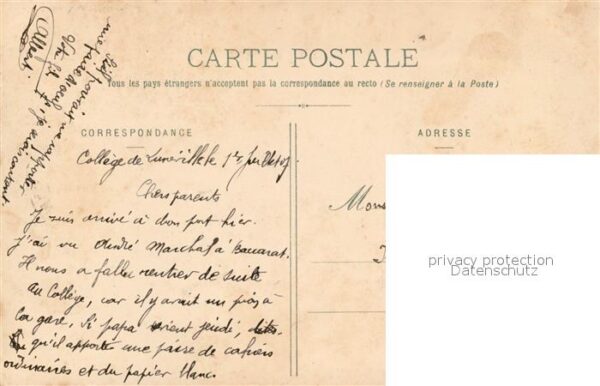 CARTE POSTALE
Tous les pays étrangers n'acceptent pas la correspondance au recto (Se renseigner à la Poste)
CORRESPONDANCE
ADRESSE
Collège de Lunéville le 1er Juillet 07
Chers parents
Je suis arrivé à bon port hier.
J'ai vu André Marchal à Baccarat.
Il nous a fallu rentrer de suite
au Collège, car il y avait un pion à
la gare. Si papa vient jeudi,
qu'il apporte une paire de cahiers
ordinaires et du papier blanc
me
je serai content.
Albert
Mons
privacy protection
Datenschutz